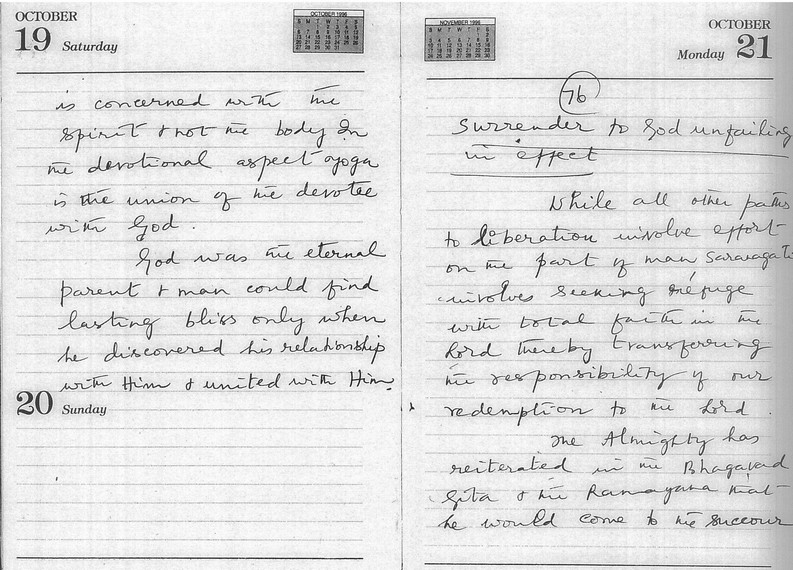 OCTOBER
19 Saturday
OCTOBER 1996
is concerned with the
spirit & not the body In
the devotional aspect yoga
is the union of the devotee
with God.
God was the eternal
parent & man could find
lasting bliss only when
he discovered his relationship
with Him & united with Him.
20 Sunday
NOVEMBER 1996
OCTOBER
Monday 21
76
Surrender to God unfailing
in effect
While all other paths
to liberation involve effort
on the part of man Saranagati
involves seeking refuge
with total faith in the
Lord thereby transferring
the responsibility of our
redemption to the Lord.
The Almighty has
reiterated in the Bhagavad
Gita & the Ramayana that
he would come to the succour